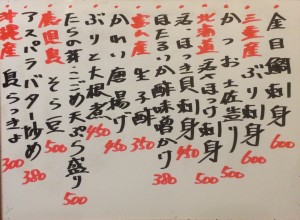 金目鯛刺身 600
三重産 ぶり刺身 600
かつお土佐造り 500
北海道 活さば刺身 500
活ほっき貝刺身 450
ほたるいか酢味噌かけ 380
富山産 生子酢 350
かれい唐揚げ 450
ぶりと大根煮 450
たらの芽こごめ天ぷら盛り 500
鹿児島 そら豆 500
アスパラバター炒め 380
沖縄産 島らっきょ 300